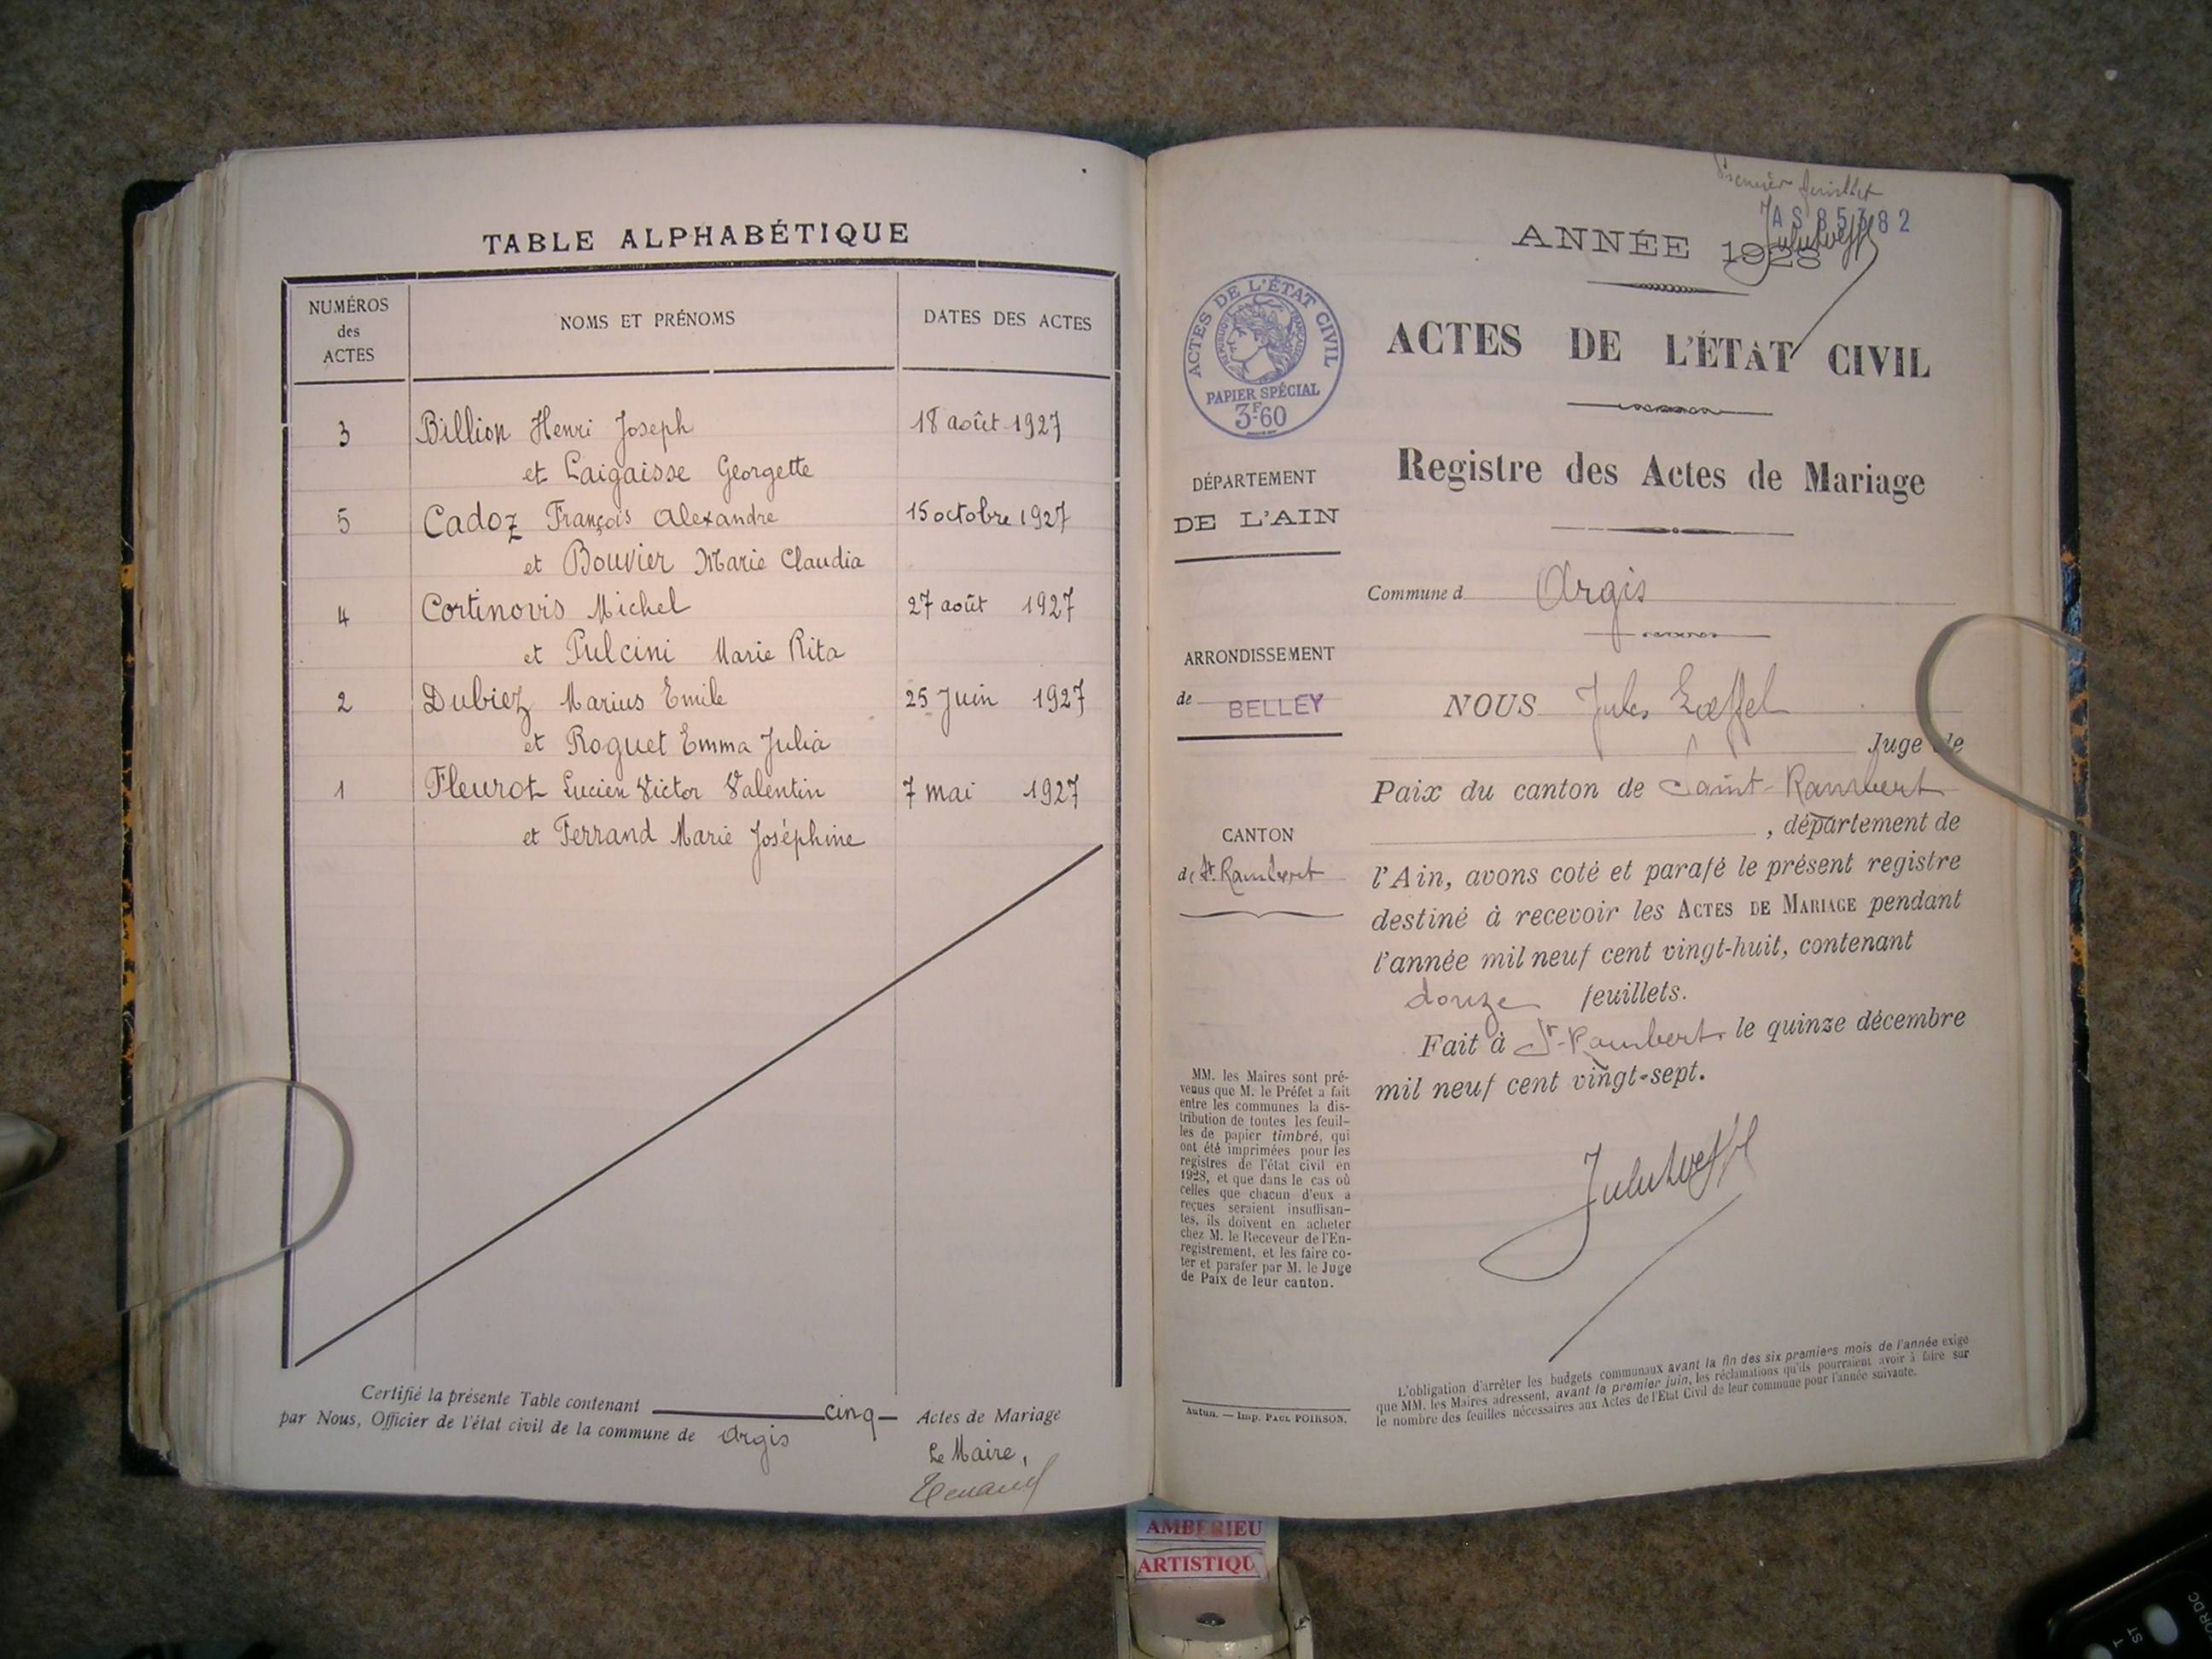 TABLE ALPHABÉTIQUE
NUMÉROS
des
ACTES
NOMS ET PRÉNOMS
DATES DES ACTES
3 Billion Henri Joseph 18 août 1927
et Laigaisse Georgette
5 Cadoz François Alexandre 15 octobre 1927
et Bouvier Marie Claudia
4 Cortinovis Michel 27 août 1927
et Pulcini Marie Rita
2 Dubiez Marius Emile 25 Juin 1927
et Roguet Emma Julia
1 Fleurot Lucien Victor Valentin 7 mai 1927
et Ferrand Marie Joséphine
Certifié la présente Table contenant cinq Actes de Mariage
par Nous, Officier de l'état civil de la commune de Argis
Le Maire,
feuillet
AS 85382
ANNÉE 1928
ACTES DE L'ÉTAT CIVIL
RÉPUBLIQUE FRANÇAISE
PAPIER SPÉCIAL
3F60
ACTES DE L'ÉTAT CIVIL
Registre des Actes de Mariage
DÉPARTEMENT
DE L'AIN
ARRONDISSEMENT
de BELLEY
CANTON
de St. Rambert
MM. les Maires sont pré-
venus que M. le Préfet a fait
entre les communes la dis-
tribution de toutes les feuil-
les de papier timbré, qui
ont été imprimées pour les
registres de l'état civil en
1928, et que dans le cas où
celles que chacun d'eux a
reçues seraient insuffisan-
tes, ils doivent en acheter
chez M. le Receveur de l'En-
registrement, et les faire co-
ter et parafer par M. le Juge
de Paix de leur canton.
Autun. — Imp. PAUL POIRSON.
Commune d Argis
NOUS Jules Lœffel
Juge de
Paix du canton de Saint-Rambert
, département de
l'Ain, avons coté et parafé le présent registre
destiné à recevoir les ACTES DE MARIAGE pendant
l'année mil neuf cent vingt-huit, contenant
douze feuillets.
Fait à St-Rambert le quinze décembre
mil neuf cent vingt-sept.
L'obligation d'arrêter les budgets communaux avant la fin des six premiers mois de l'année exige
que MM. les Maires adressent, avant le premier juin, les réclamations qu'ils pourraient avoir à faire sur
le nombre des feuilles nécessaires aux Actes de l'Etat Civil de leur commune pour l'année suivante.
AMBERIEU
ARTISTIQU
ST